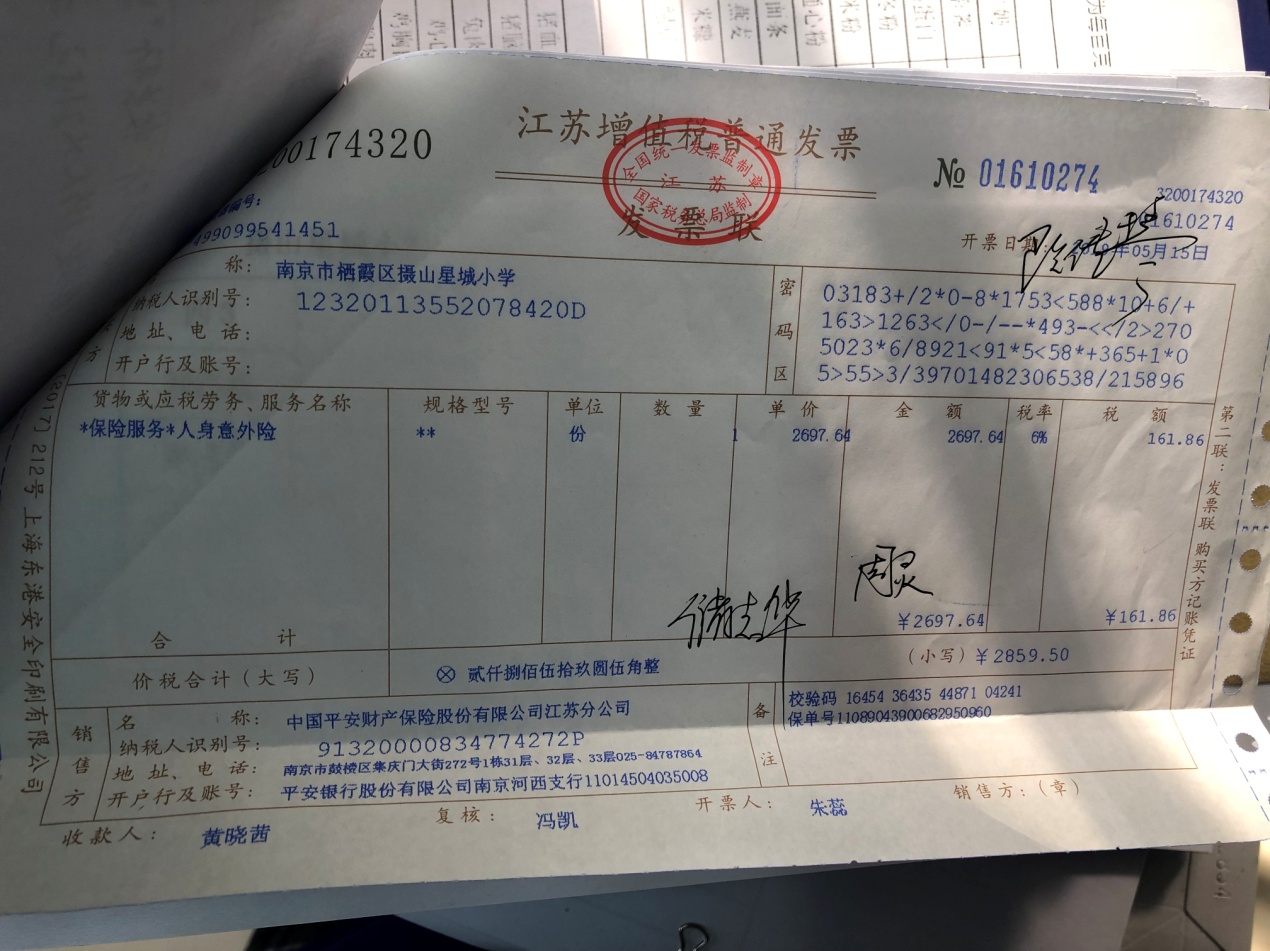 00174320
江苏增值税普通发票
全国统一发票监制章
江 苏
国家税务总局监制
发 票 联
№ 01610274
3200174320
1610274
编号:
499099541451
开票日期: 年05月15日
称: 南京市栖霞区摄山星城小学
纳税人识别号: 12320113552078420D
地址、电话:
开户行及账号:
方
密码区
03183+/2*0-8*1753<588*10+6/+
163>1263</0-/--*493-<</2>270
5023*6/8921<91*5<58*+365+1*0
5>55>3/39701482306538/215896
货物或应税劳务、服务名称 规格型号 单位 数量 单价 金额 税率 税额
*保险服务*人身意外险 ** 份 1 2697.64 2697.64 6% 161.86
周灵
储志华
合计 ¥2697.64 ¥161.86
价税合计(大写) ⊗ 贰仟捌佰伍拾玖圆伍角整 (小写)¥2859.50
销售方
名称: 中国平安财产保险股份有限公司江苏分公司
纳税人识别号: 91320000834774272P
地址、电话: 南京市鼓楼区集庆门大街272号1栋31层、32层、33层025-84787864
开户行及账号: 平安银行股份有限公司南京河西支行11014504035008
备注
校验码 16454 36435 44871 04241
保单号11089043900682950960
收款人: 黄晓茜 复核: 冯凯 开票人: 朱蕊 销售方:(章)
第二联:发票联 购买方记账凭证
[2017] 212号 上海东港安全印刷有限公司